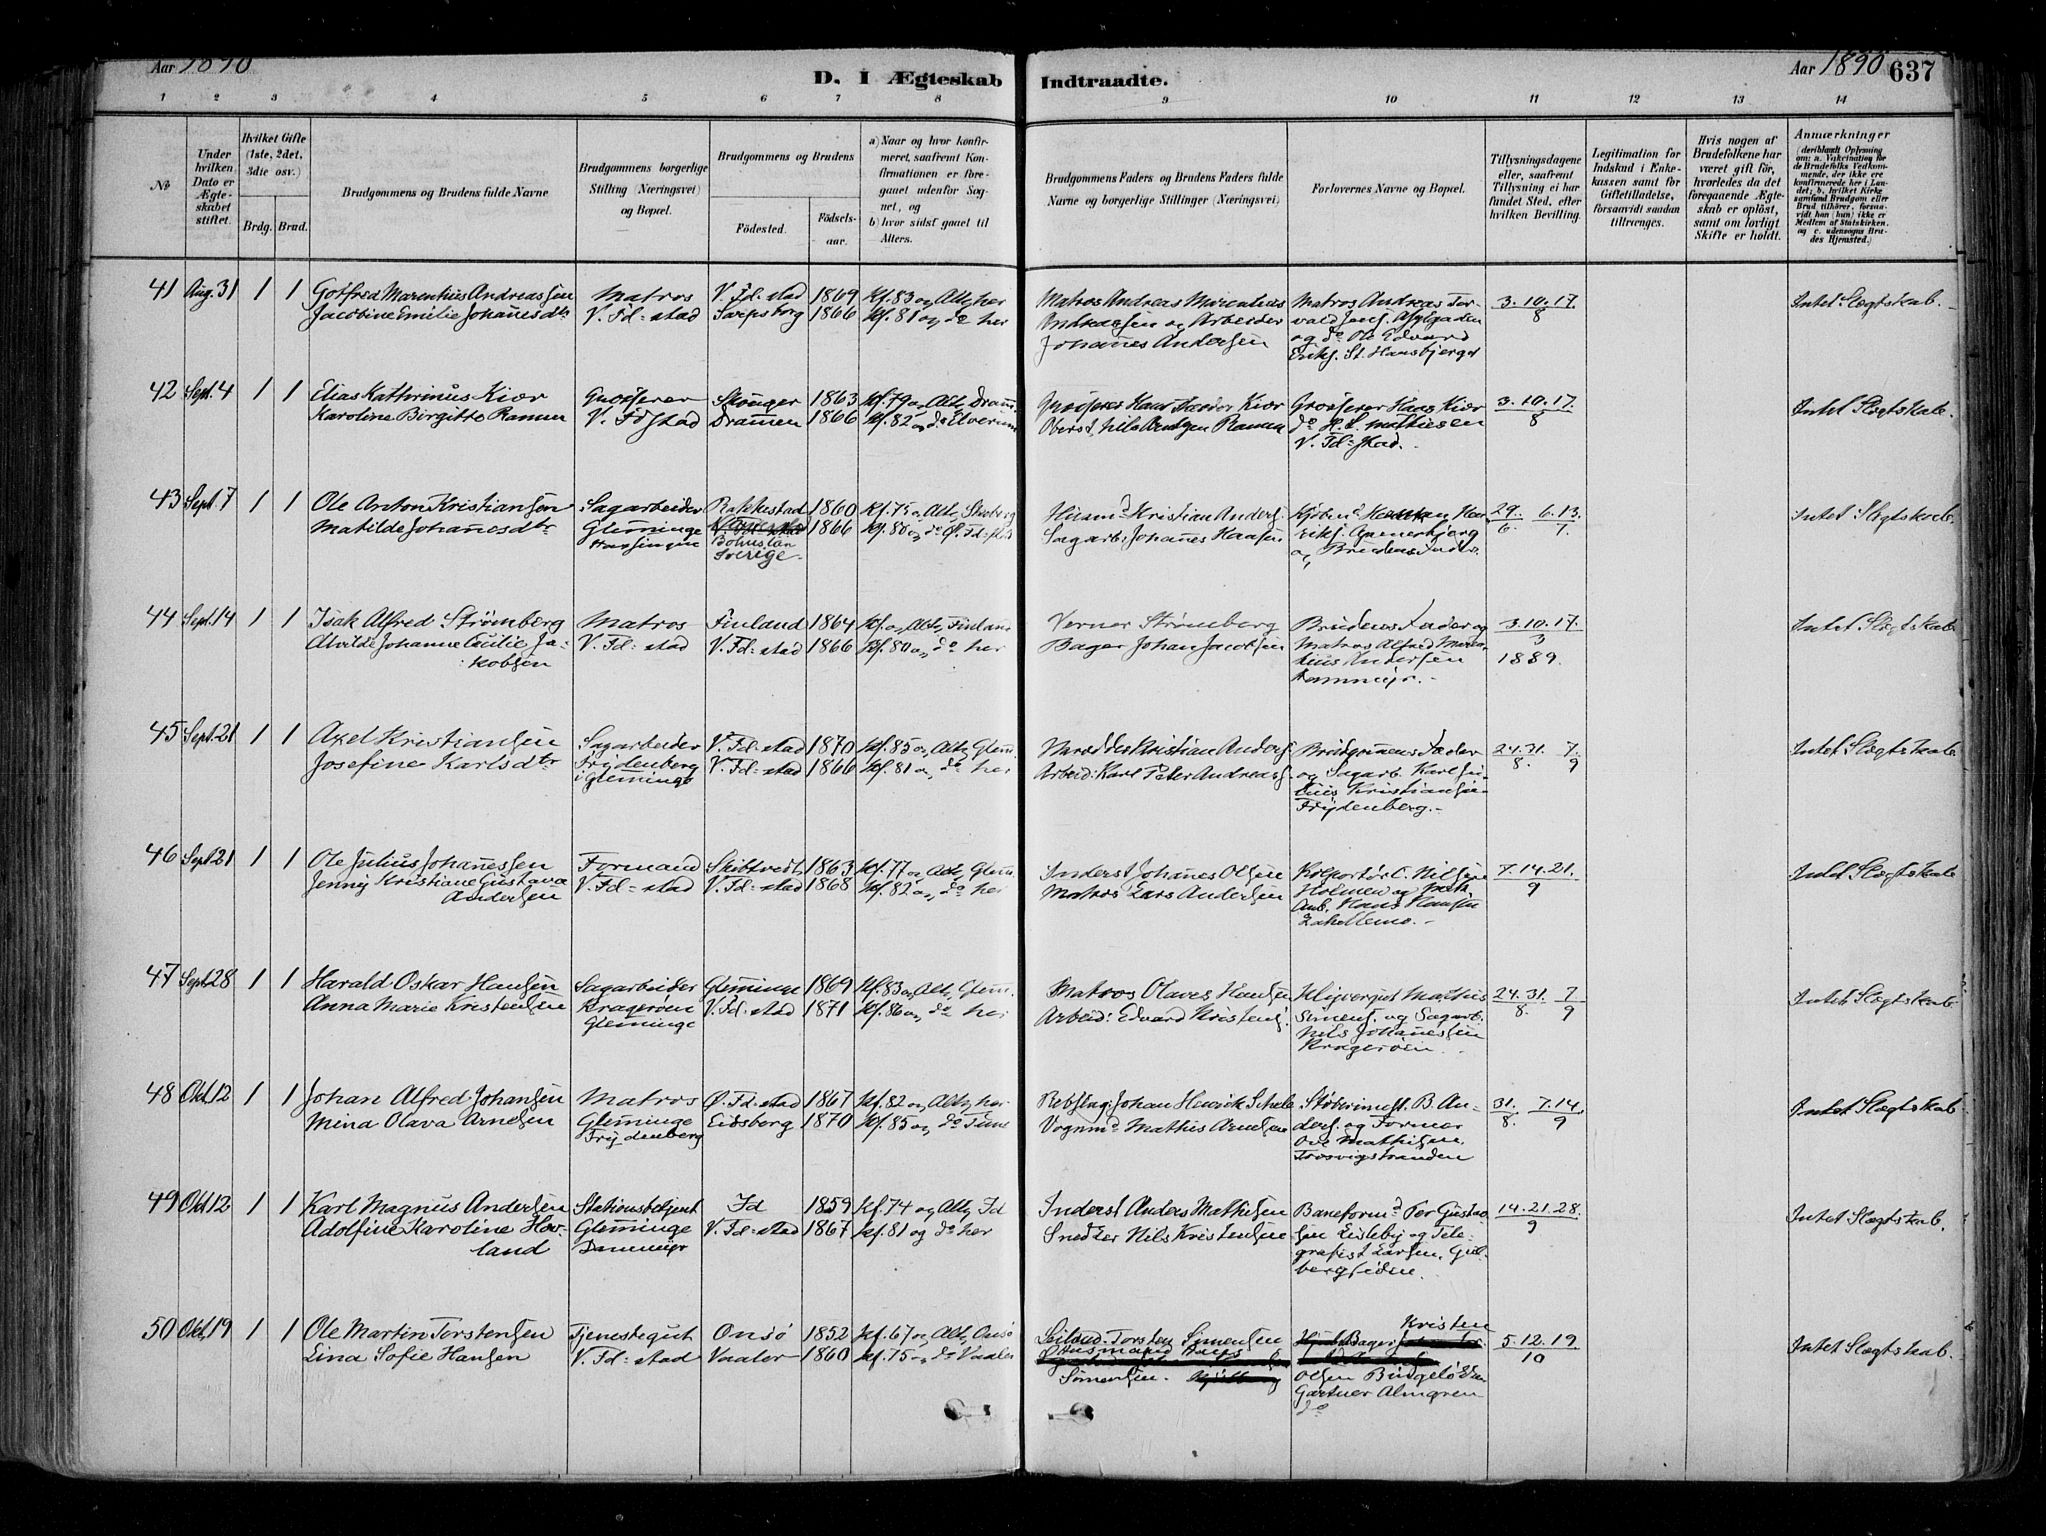 Aar 1890
D. I Ægteskab Indtraadte.
Aar 1890 637
1 2 3 4 5 6 7 8 9 10 11 12 13 14
No
Under hvilken Dato er Ægteskabet stiftet.
Hvilket Gifte (1ste, 2det, 3die osv.)
Brdg. Brud.
Brudgommens og Brudens fulde Navne
Brudgommens borgerlige Stilling (Næringsvei) og Bopæl.
Brudgommens og Brudens
Fødested.
Fødselsaar.
a) Naar og hvor konfirmeret, saafremt Konfirmationen er foregaaet udenfor Sognet, og
b) hvor sidst gaaet til Alters.
Brudgommens Faders og Brudens Faders fulde Navne og borgerlige Stillinger (Næringsvei)
Forlovernes Navne og Bopæl.
Tillysningsdagene eller, saafremt Tillysning ei har fundet Sted, efter hvilken Bevilling.
Legitimation for Indskud i Enkekassen samt for Giftetilladelse, forsaavidt saadan tiltrænges.
Hvis nogen af Brudefolkene har været gift før, hvorledes da det foregaaende Ægteskab er opløst, samt om lovligt Skifte er holdt.
Anmærkninger
(deriblandt Oplysning om: a. Vakcination for de Brudefolks Vedkommende, der ikke ere konfirmerede her i Landet; b. hvilket Kirkesamfund Brudgom eller Brud tilhører, forsaavidt han (hun) ikke er Medlem af Statskirken, og c. udensogns Brudes Hjemsted.)
41 Aug. 31 1 1 Gotfred Marentius Andreassen Matros V. Fd:stad 1869 Kf. 83 og Alt, her Matros Andreas Marentius Matros Andreas Tor- 3. 10. 17. Intet Slægtskab.
Jacobine Emilie Johanesdtr V. Fd:stad Sarpsborg 1866 Kf. 81 og do her Andreassen og Arbeider vald Jens. Asylgaden 8
Johannes Andersen og do Ole Edvard
Eriks. St. Hansbjerget
42 Sept. 4 1 1 Elias Kathrinus Kiær Grosserer 1863 Kf. 79 og Alt, Dram. Grosserer Hans Kiær 3. 10. 17. Intet Slægtskab.
Karoline Birgitte Ramm V. Fdstad Dramen 1866 Kf. 82 og do Elverum Oberst Nils Ramm do H. L. Mathiesen 8
V. Fd:stad.
43 Sept. 7 1 1 Ole Anton Kristiansen Sagarbeider Rakkestad 1860 Kf. 75 og Alt, Husm. Kristian Anders. 29. 6. 13. Intet Slægtskab.
Matilde Johanesdtr Gleminge 1866 Kf. 80 og do Ø. Fd:stad Sagarb: Johanes Hansen Eriks. 6. 7.
Bohuslän og Brudens Fader.
Sverige.
44 Sept. 14 1 1 Isak Alfred Strømberg Matros Finland 1864 Kf. og Alt, Finland Verner Strømberg Brudens Fader og 3. 10. 17. Intet Slægtskab
Alvilde Johanne Cecilie Ja- V. Fd:stad V. Fd:stad 1866 Kf. 80 og do her Bager Johan Jacobsen Matros Alfred 3
kobsen Andersen 1889.
Dammyr.
45 Sept. 21 1 1 Axel Kristiansen Sagarbeider V. Fd:stad 1870 Kf. 85 og Alt, Glem. Kristian Anders. Brudgomens Fader 24. 31. 7. Intet Slægtskab
Josefine Karlsdtr Frydenberg V. Fd:stad 1866 Kf. 81 og do her Arbeid: Karl Peter Andreass. og Sagarb. Karl Ju- 8. 9
i Gleminge lius Kristiansen
Frydenberg.
46 Sept 21 1 1 Ole Julius Johanessen Formand Skibtvedt 1863 Kf. 77 og Alt, Glem. Inderst Johanes Olsen Kolportør C. Nilsen 7. 14. 21. Intet Slægtskab
Jenny Kristiane Gustava V. Fd:stad V. Fd:stad 1868 Kf. 82 og do her Matros Lars Andersen Holmen og 9
Andersen Arb. Hans Hansen
47 Sept 28 1 1 Harald Oskar Hansen Sagarbeider Gleminge 1869 Kf. 83 og Alt, Glem. Matros Olaves Hansen Mathias 24. 31. 7 Intet Slægtskab.
Anna Marie Kristensen Kragerøen V. Fd:stad 1871 Kf. 86 og do her Arbeid: Edvard Kristens. Simens. og Sagarb. 8. 9
Gleminge Nils Johanessen
Kragerøen.
48 Okt. 12 1 1 Johan Alfred Johansen Matros Ø. Fd:stad 1867 Kf. 82 og Alt, her Rebslag: Johan Henrik B. An- 31. 7. 14 Intet Slægtskab
Mina Olava Arnesen Gleminge Eidsberg 1870 Kf. 85 og do Tune Vognmd Mathis Arnesen ders. og Former 8. 9
Frydenberg Ove Mathisen.
Trosvigstranden
49 Okt 12 1 1 Karl Magnus Andersen Stationsbetjent Id 1859 Kf. 74 og Alt, Id Inderst Anders Mathisen Baneformd Per Gustav- 14. 21. 28. Intet Slægtskab.
Adolfine Karoline Hov- Gleminge V. Fd:stad 1867 Kf. 81 og do her Snedker Nils Kristensen sen Lisleby og Tele- 9
land Dammyr grafist Larsen, Gul-
bergsiden.
50 Okt. 19 1 1 Ole Martin Torstensen Tjenestegut Onsø 1852 Kf. 67 og Alt, Onsø Torsten Simensen Kristen 5. 12. 19 Intet Slægtskab.
Lina Sofie Hansen V. Fd:stad Vaaler 1860 Kf. 75 og do Vaaler Husmand Hans 10
Simensen. Olsen
Gartner Almgren
do